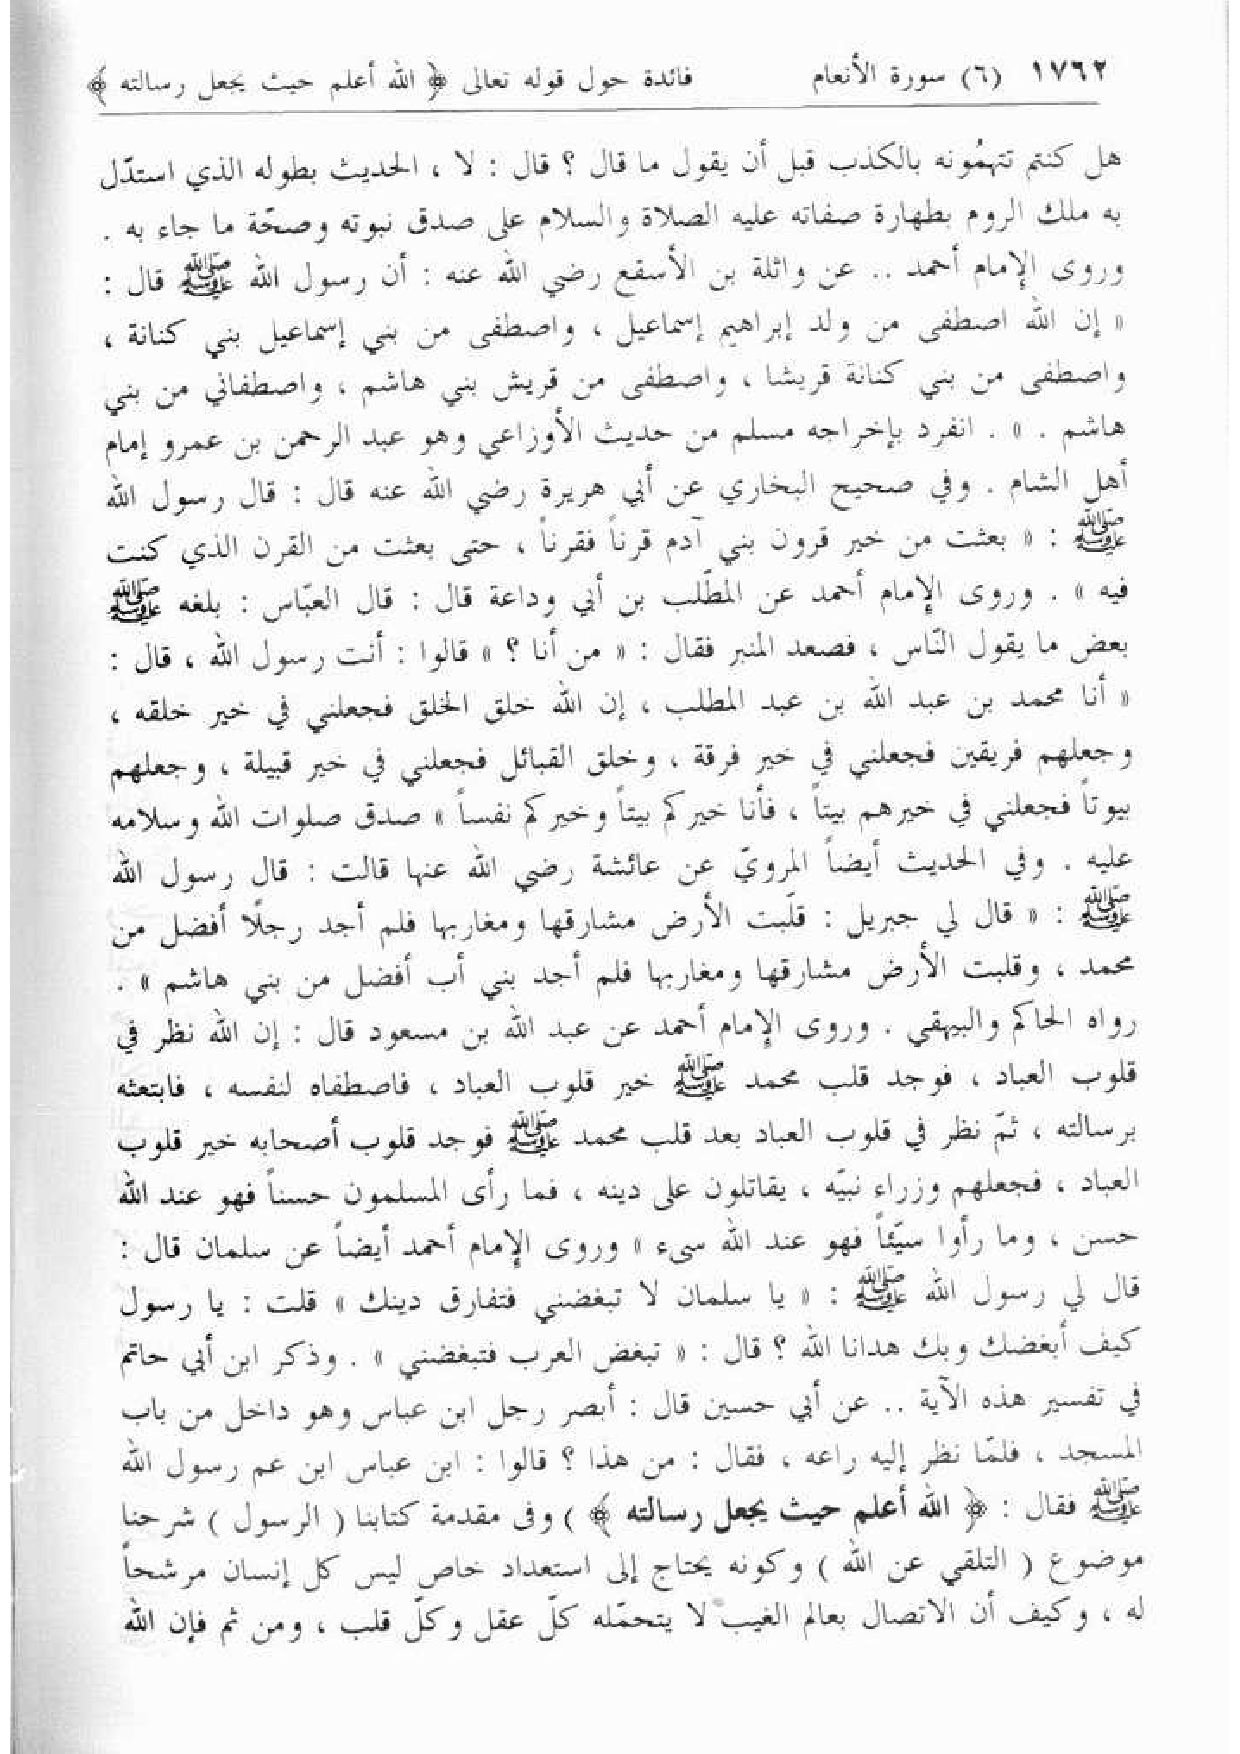 ١٧٦٢ (٦) سورة الأنعام فائدة حول قوله تعالى ﴿ الله أعلم حيث يجعل رسالته ﴾
هل كنتم تتهمُونه بالكذب قبل أن يقول ما قال ؟ قال : لا ، الحديث بطوله الذي استدّل
به ملك الروم بطهارة صفاته عليه الصلاة والسلام على صدق نبوته وصحّة ما جاء به .
وروى الإمام أحمد .. عن واثلة بن الأسقع رضي الله عنه : أن رسول الله ﷺ قال :
« إن الله اصطفى من ولد إبراهيم إسماعيل ، واصطفى من بني إسماعيل بني كنانة ،
واصطفى من بني كنانة قريشا ، واصطفى من قريش بني هاشم ، واصطفاني من بني
هاشم . » . انفرد بإخراجه مسلم من حديث الأوزاعي وهو عبد الرحمن بن عمرو إمام
أهل الشام . وفي صحيح البخاري عن أبي هريرة رضي الله عنه قال : قال رسول الله
ﷺ : « بعثت من خير قرون بني آدم قرناً فقرناً ، حتى بعثت من القرن الذي كنت
فيه » . وروى الإمام أحمد عن المطّلب بن أبي وداعة قال : قال العبّاس : بلغه ﷺ
بعض ما يقول النّاس ، فصعد المنبر فقال : « من أنا ؟ » قالوا : أنت رسول الله ، قال :
« أنا محمد بن عبد الله بن عبد المطلب ، إن الله خلق الخلق فجعلني في خير خلقه ،
وجعلهم فريقين فجعلني في خير فرقة ، وخلق القبائل فجعلني في خير قبيلة ، وجعلهم
بيوتاً فجعلني في خيرهم بيتاً ، فأنا خيركم بيتاً وخيركم نفساً » صدق صلوات الله وسلامه
عليه . وفي الحديث أيضاً المرويّ عن عائشة رضي الله عنها قالت : قال رسول الله
ﷺ : « قال لي جبريل : قلّبت الأرض مشارقها ومغاربها فلم أجد رجلًا أفضل من
محمد ، وقلبت الأرض مشارقها ومغاربها فلم أجد بني أب أفضل من بني هاشم » .
رواه الحاكم والبيهقي . وروى الإمام أحمد عن عبد الله بن مسعود قال : إن الله نظر في
قلوب العباد ، فوجد قلب محمد ﷺ خير قلوب العباد ، فاصطفاه لنفسه ، فابتعثه
برسالته ، ثمّ نظر في قلوب العباد بعد قلب محمد ﷺ فوجد قلوب أصحابه خير قلوب
العباد ، فجعلهم وزراء نبيّه ، يقاتلون على دينه ، فما رأى المسلمون حسناً فهو عند الله
حسن ، وما رأوا سيّئاً فهو عند الله سيء » وروى الإمام أحمد أيضاً عن سلمان قال :
قال لي رسول الله ﷺ : « يا سلمان لا تبغضني فتفارق دينك » قلت : يا رسول
كيف أبغضك وبك هدانا الله ؟ قال : « تبغض العرب فتبغضني » . وذكر ابن أبي حاتم
في تفسير هذه الآية .. عن أبي حسين قال : أبصر رجل ابن عباس وهو داخل من باب
المسجد ، فلمّا نظر إليه راعه ، فقال : من هذا ؟ قالوا : ابن عباس ابن عم رسول الله
ﷺ فقال : ﴿ الله أعلم حيث يجعل رسالته ﴾ ) وفى مقدمة كتابنا ( الرسول ) شرحنا
موضوع ( التلقي عن الله ) وكونه يحتاج إلى استعداد خاص ليس كل إنسان مرشحاً
له ، وكيف أن الاتصال بعالم الغيب لا يتحمّله كلّ عقل وكلّ قلب ، ومن ثم فإن الله